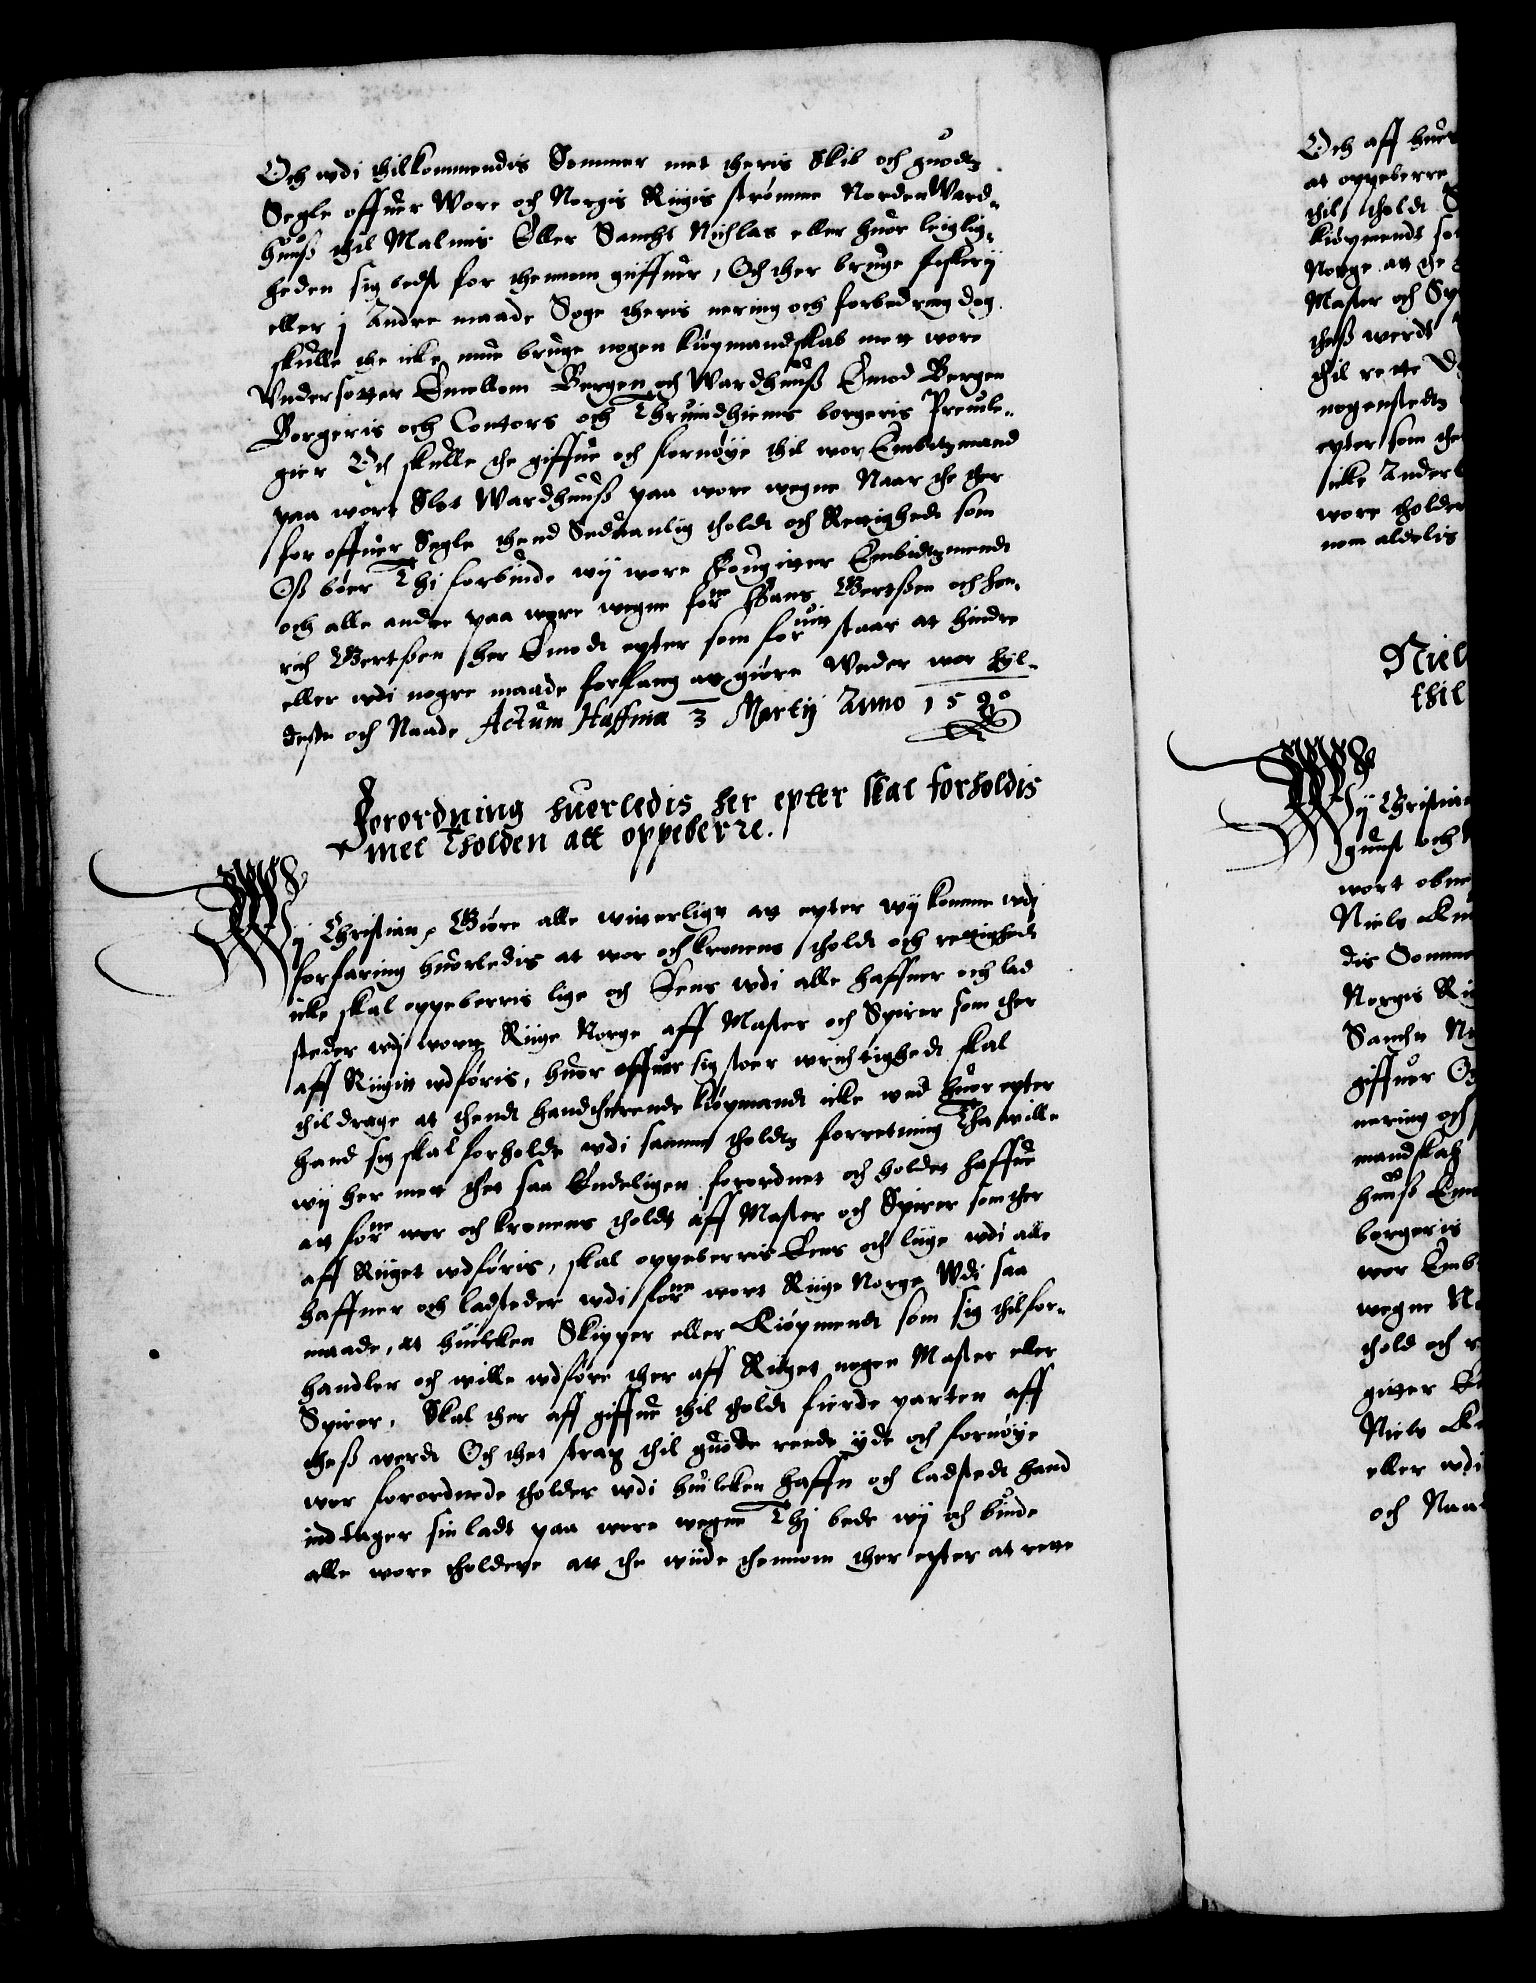 Och wdi thilkommendis Sommer met theris Skib och guodtz
Segle offuer Wore och Norgis Riigis strømme Norden Ward¬
huuß thil Malmis Eller Sancht Nichlas eller huor leiglig¬
heden sig best for thennom giffuer, Och ther bruge fiskerij
eller j Andre maade Søge theris nering och forbedring dog
skulle the icke mue bruge nogen kiøpmandskab mett wore
Vndersotter Emellom Bergen och Wardhuuß Emod Bergen
Borgeris och Contors och Thruindhiems borgeris Preuile¬
gier Och skulle the giffue och fornøye thil wor Embitzmand
paa wort Slot Wardhuuß paa wore wegne Naar the ther
for offuer Segle thend Seduaanlig thold och Rettighedt som
Oß bøer Thj forbiude wij wore Fougitter Embidtzmendt
och alle andre paa wore wegne forne Hans Gertßen och Hen¬
rich Gertßen her Emodt epter som foruit staar at hindre
eller wdi nogre maade forfang at giøre Vnder wor hyl¬
deste och Naade Actum Haffnia 3 Martij Anno 1590
Forordning huorledis her epter skal forholdis
met Tholden att oppeberre.
Wij Christian, Giøre alle witterligt att epter wij komme wdj
forfaring huorledis at wor och kronens thold och rettighedt
icke skal oppeberris lige och Eens wdi alle haffner och lad
steder wdj wort Riige Norge aff Master och Spirer som ther
aff Riigitt wdføris, huor offuer sig stoer wrichtighedt skal
thildrage at thendt handtherende kiøpmandt icke wed huor epter
hand sig skal forholde wdi samme tholdtz forretning Tha wille
wij her mett thet saa Endeligen forordnet och holdet haffue
att forne wor och kronens tholdt aff Master och Spirer som ther
aff Riiget wdføris, skal oppeberris Eens och liige wdi alle
haffner och ladsteder wdi forne wort Riige Norge Wdi saa
maade, at huilcken Skipper eller Kiøpmendt som sig thilfor¬
handler och wille wdføre ther aff Riiget nogen Master eller
Spirer, Skal ther aff giffue thil tholdt fierde parten aff
theß werdt Och thet strax thil guode rende yde och fornøye
wor forordnede tholder wdi huilcken haffn och ladstedt hand
indtager sin ladt paa wore wegne Thj bede wij och biude
alle wore tholdere att the wiide thennom ther epter at rette
Och aff huer
at oppeberre
thil tholdt
kiøpmendt
Norge at
Master och
theß werdt
thil rette
nogenstedtz
epter som the
icke Anderl
wore tholder
nom aldelis
Niel
thil
Wij Christian
gunst och
wort obne
Niels
dis Somme
Norgis
Sanchte
giffuer
nering och
mandskab
huuß
borgeris
wor Emb
wegne
thold och
gitter
Niels
eller wdi
och Naa